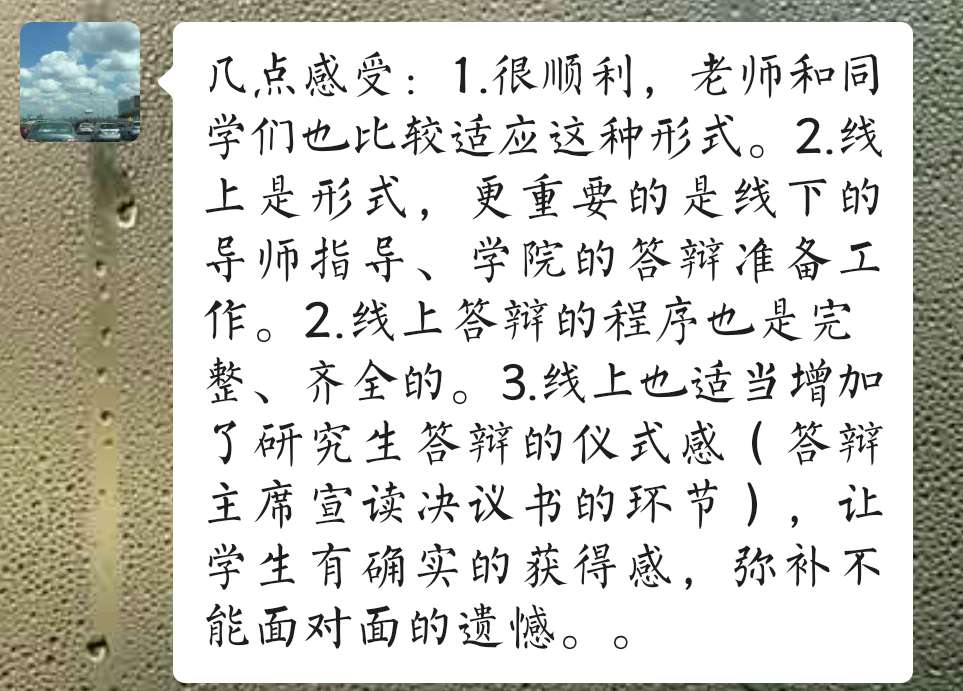 几点感受：1.很顺利，老师和同
学们也比较适应这种形式。2.线
上是形式，更重要的是线下的
导师指导、学院的答辩准备工
作。2.线上答辩的程序也是完
整、齐全的。3.线上也适当增加
了研究生答辩的仪式感（答辩
主席宣读决议书的环节），让
学生有确实的获得感，弥补不
能面对面的遗憾。。